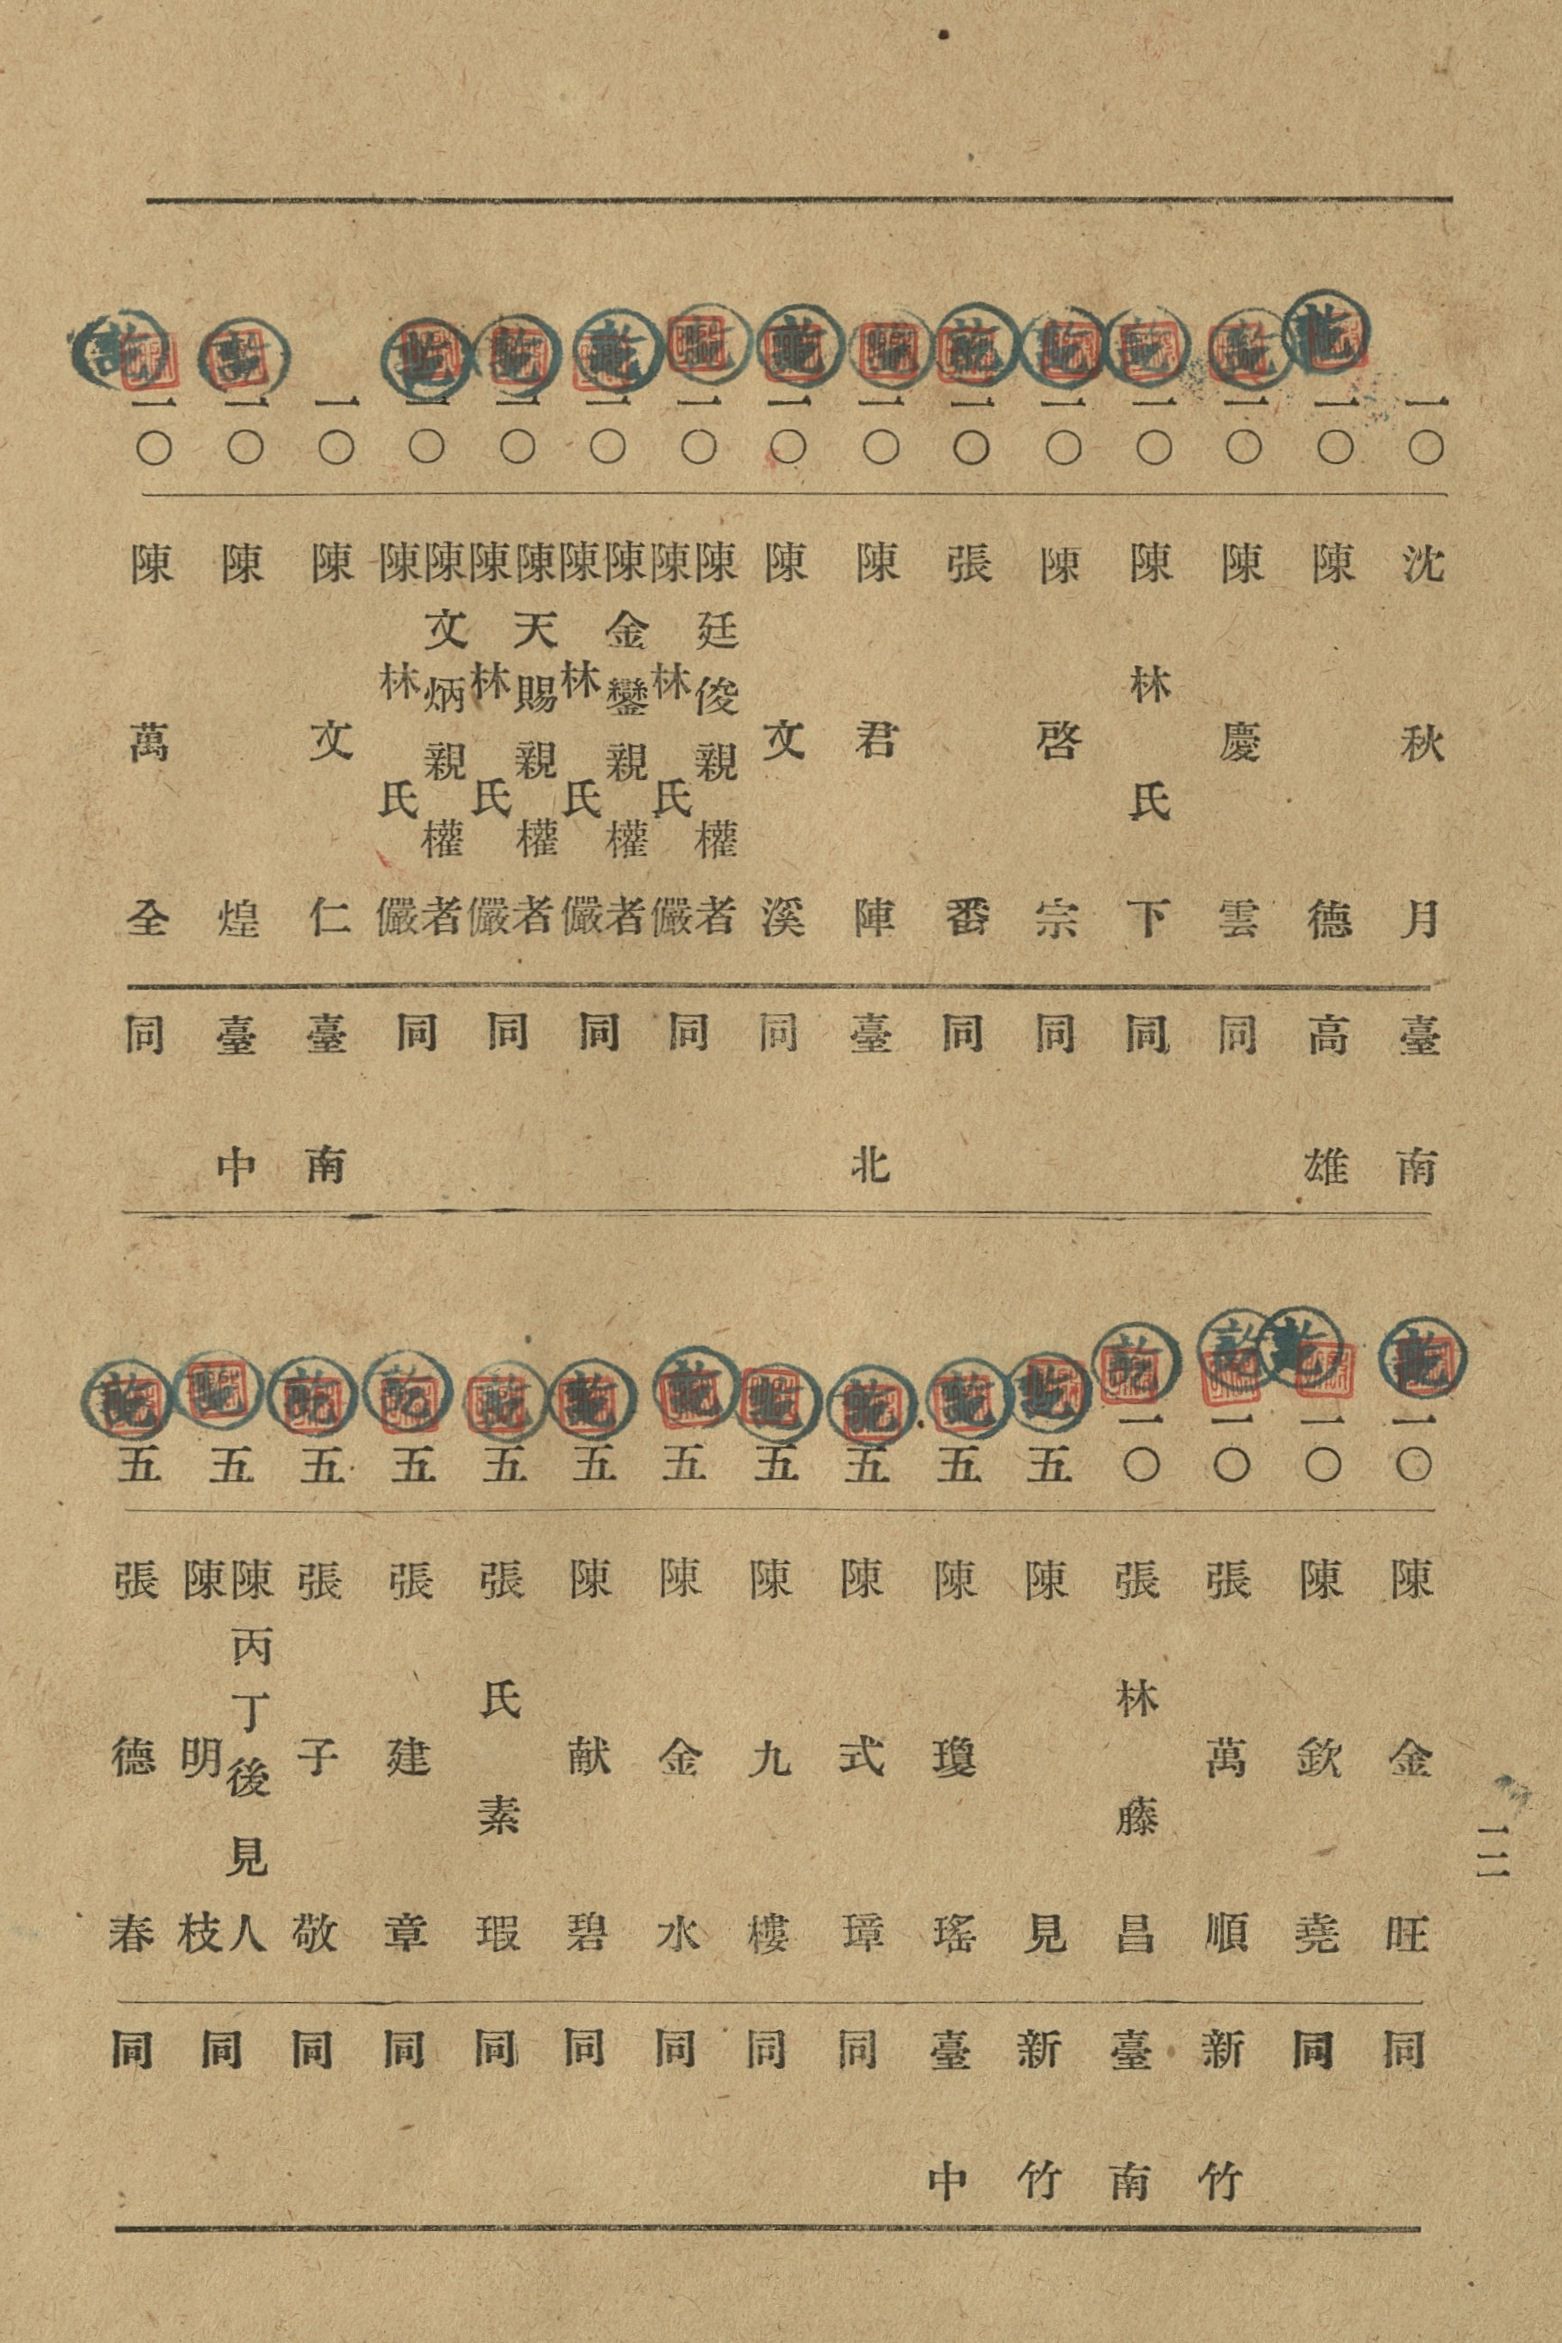 一〇 沈秋月 臺南
一〇 陳德 高雄
一〇 陳慶雲 同
一〇 陳林氏下 同
一〇 陳啓宗 同
一〇 張番 同
一〇 陳君陣 臺北
一〇 陳文溪 同
一〇 陳廷俊親權者 陳林氏儼 同
一〇 陳金鑾親權者 陳林氏儼 同
一〇 陳天賜親權者 陳林氏儼 同
一〇 陳文炳親權者 陳林氏儼 同
一〇 陳文仁 臺南
一〇 陳煌 臺中
一〇 陳萬全 同
一〇 陳金旺 同
一〇 陳欽堯 同
一〇 張萬順 新竹
一〇 張林藤昌 臺南
五 陳見 新竹
五 陳瓊瑤 臺中
五 陳式璋 同
五 陳九樓 同
五 陳金水 同
五 陳献碧 同
五 張氏素瑕 同
五 張建章 同
五 張子敬 同
五 陳丙丁後見人 陳明枝 同
五 張德春 同
一二